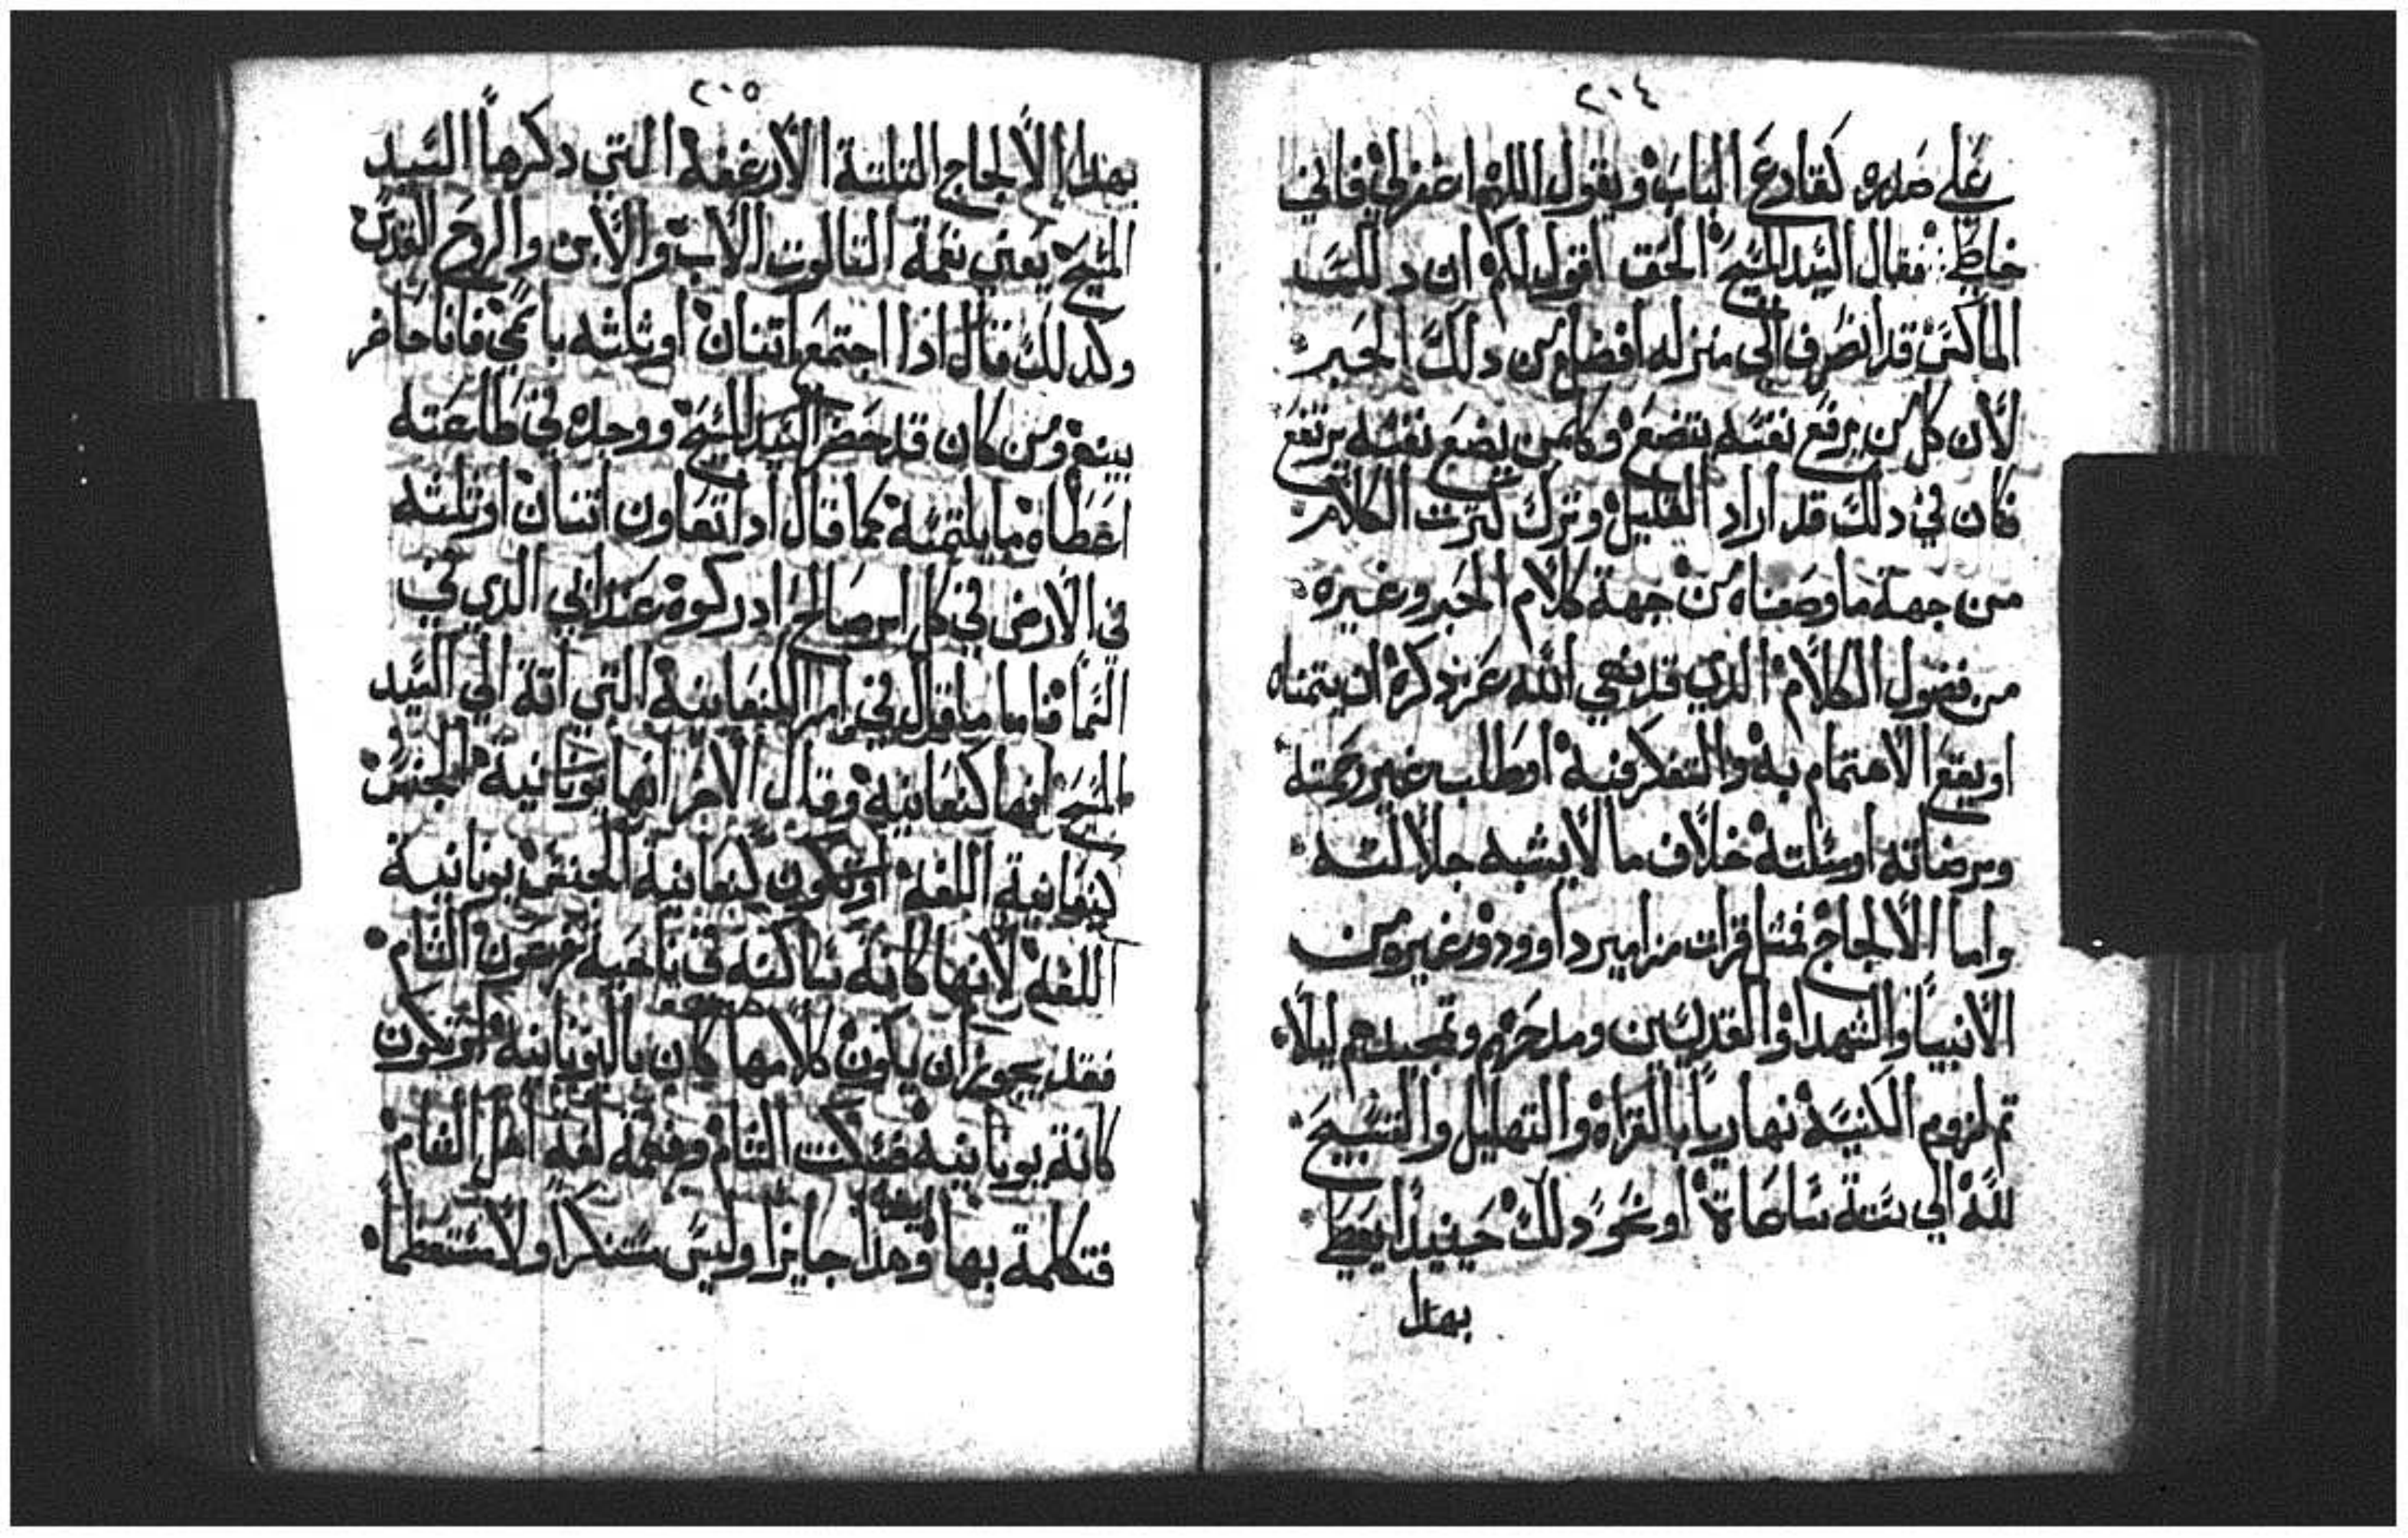 ٢٠٤
على صدره كقارع الباب ويقول اللهم اغفرلي فاني
خاطي فقال السيد المسيح الحق اقول لكم ان دلك
الماكس قد انصرف الى منزله افضل من دلك الحبر
لأن كل من يرفع نفسه يتضع وكلمن يضع نفسه يرتفع
فكان في دلك قد اراد القليل وترك كترت الكلام
من جهة ما وصفناه من جهة كلام الحبر وغيره
من فضول الكلام الذي قد نهى الله عز ذكره ان يتمناه
او يقع الاهتمام به والتفكر فيه او طلب غير رحمته
ومرضاته او مسلته خلاف ما لا يشبه جلالته
واما الالجاج فمتل قرات مزامير داوود وغيره من
الأنبيا والشهدا والقديسين ومدحهم وتمجيدهم ليلا
تم لزوم الكنيسة نهاريا بالقراه والتهليل والتسبيح
لله الي ستة ساعاة او نحو دلك حينيدا يعطي
بهدا
٢٠٥
بهدا الألجاج التلتة الأرغفة التي دكرها السيد
المسيح يعني نعمة التالوت الأب والأبن والروح القدس
وكدلك قال ادا اجتمع اتنان او تلته باسمي فانا حاضر
بينهم ومن كان قد حضر السيد المسيح ووجده في طاعته
اعطاه ما يلتمسه كما قال ادا تعاون اتنان او تلته
في الأرض في كل امر صالح ادركوه عند ابي الدي في
السما فاما ما قيل في امر الكنعانية التي اتة الي السيد
المسيح انها كنعانية وقال الأخر انها يونانية الجنس
كنعانية اللغة او تكون كنعانية الجنس يونانية
اللغة لأنها كانة ساكنه في ناحية فرعون الشام
فقد يجوز ان يكون كلامها كان باليونانية او تكون
كانة يونانية فسكنت الشام وفهمة لغة اهل الشام
فتكلمة بها وهدا ايضا جايزا وليس مستنكرا ولا مستعظما